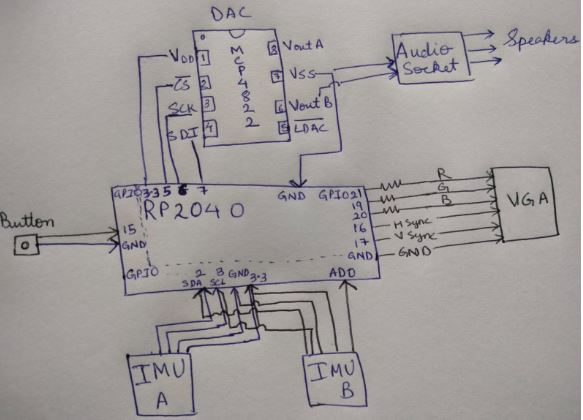 DAC
MCP4822
VDD 1
CS 2
SCK 3
SDI 4
8 VoutA
7 VSS
6 VoutB
5 LDAC
Audio
Socket
Speakers
GPIO 3.3 5 6 7
GND GPIO 21
19
20
16
17
GND
RP2040
Button
15
GND
GPIO 2 3 GND 3.3
SDA SCL
AD0
R
G
B
H Sync
V Sync
GND
VGA
IMU
A
IMU
B